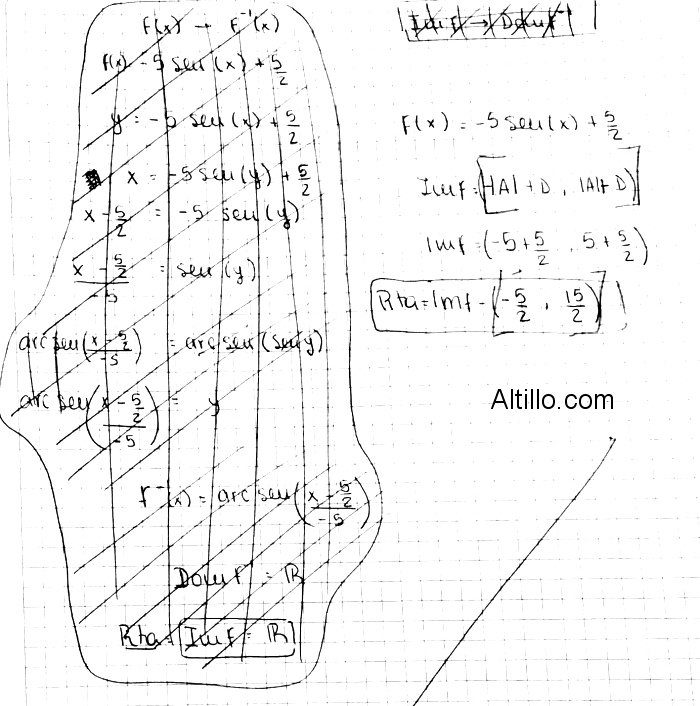 f(x) → f⁻¹(x)
f(x) - 5 sen(x) + 5/2
y = -5 sen(x) + 5/2
x = -5 sen(y) + 5/2
x - 5/2 = -5 sen(y)
(x - 5/2)/-5 = sen(y)
arc sen((x - 5/2)/-5) = arc sen(sen y)
arc sen((x - 5/2)/-5) = y
f⁻¹(x) = arc sen((x - 5/2)/-5)
Dom f⁻¹ = ℝ
Rta = Im f = ℝ
Im f → Dom f⁻¹
f(x) = -5 sen(x) + 5/2
Im f = [-|A| + D, |A| + D]
Im f = (-5 + 5/2, 5 + 5/2)
Rta = Im f = [-5/2, 15/2]
Altillo.com